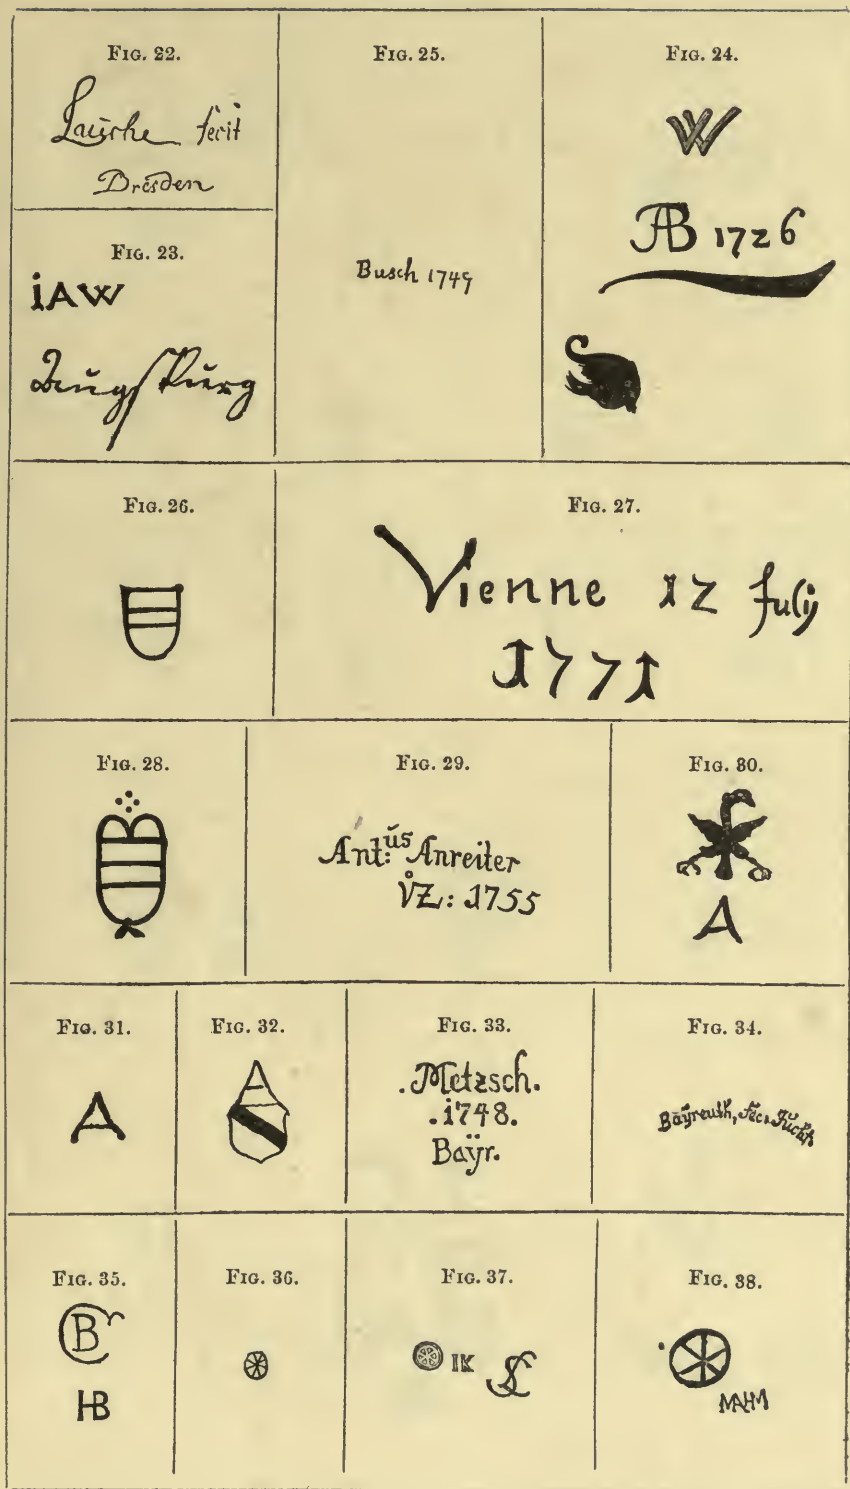 FIG. 22.
Laurche fecit
Dresden
FIG. 23.
iAW
Augspurg
FIG. 25.
Busch 1749
FIG. 24.
W
AB 1726
FIG. 26.
FIG. 27.
Vienne 12 July
1771
FIG. 28.
FIG. 29.
Ant:ůs Anreiter
VZ: 1755
FIG. 30.
A
FIG. 31.
A
FIG. 32.
FIG. 33.
.Metzsch.
.1748.
Baÿr.
FIG. 34.
Baÿreuth, fec.
FIG. 35.
B
HB
FIG. 36.
FIG. 37.
IK
FIG. 38.